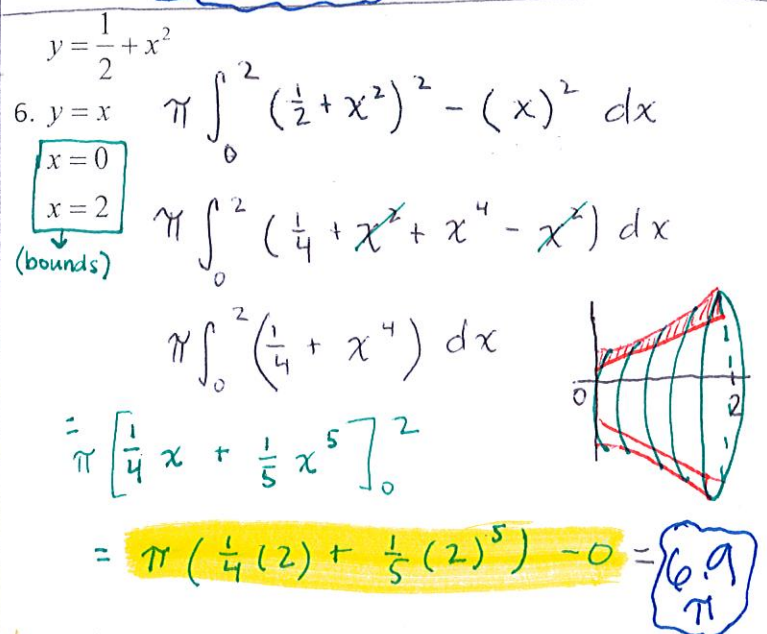 y = 1/2 + x²
6. y = x
x = 0
x = 2
(bounds)
π ∫₀² (1/2 + x²)² - (x)² dx
π ∫₀² (1/4 + x² + x⁴ - x²) dx
π ∫₀² (1/4 + x⁴) dx
= π [1/4 x + 1/5 x⁵]₀²
0 2
= π (1/4 (2) + 1/5 (2)⁵) - 0 = 6.9 π